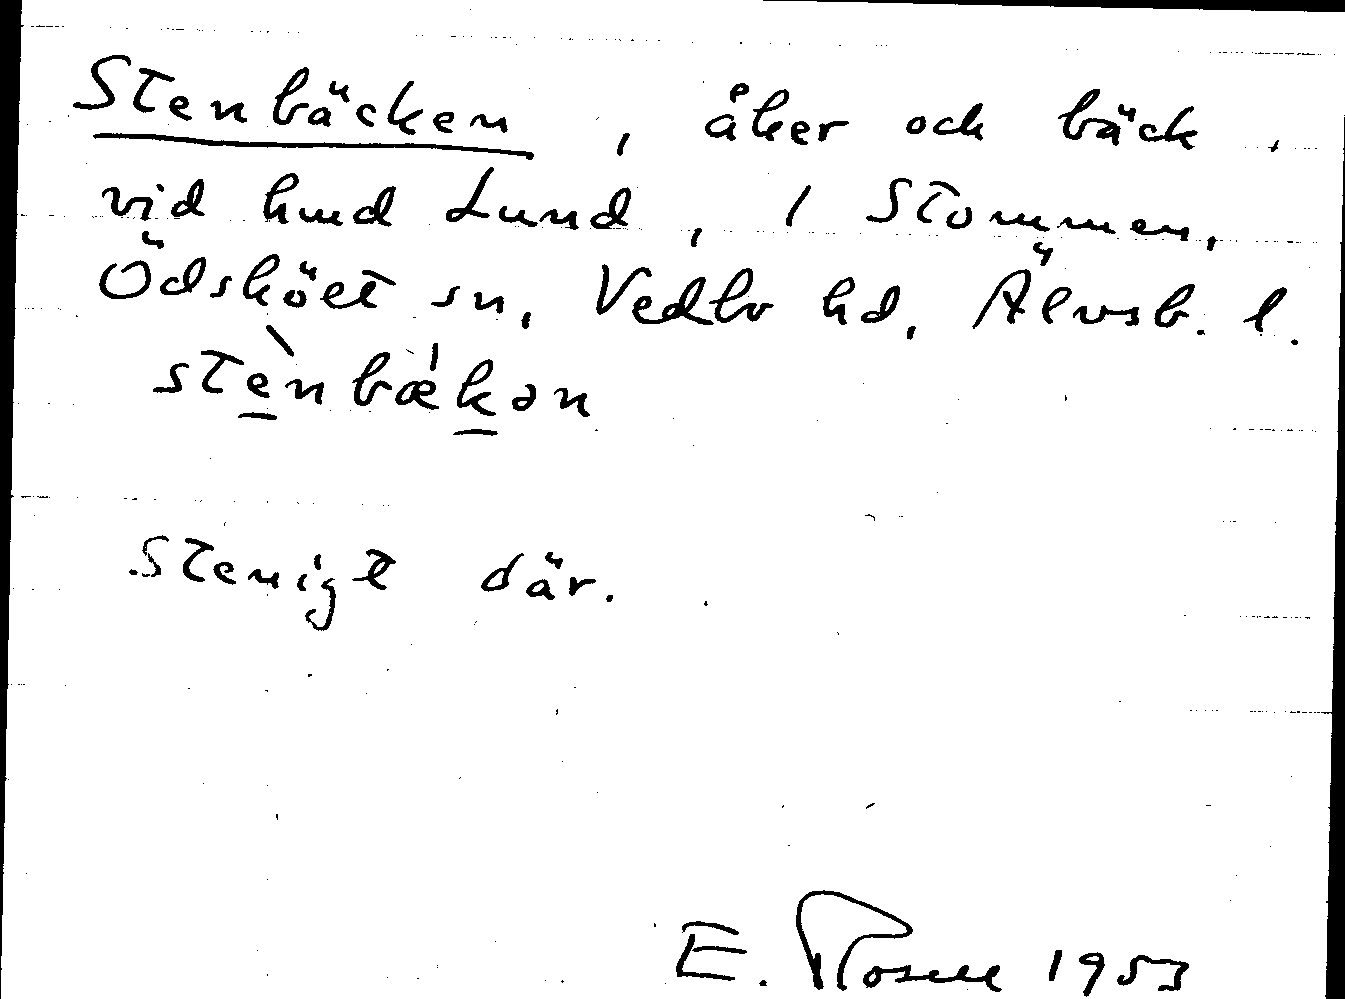 Stenbäcken, åker och bäck
vid hmd Lund, 1 Stommen,
Ödsköet sn, Vedbo hd, Älvsb. l.
stènbǽkən
Stenigt där.
E. Rosell 1953